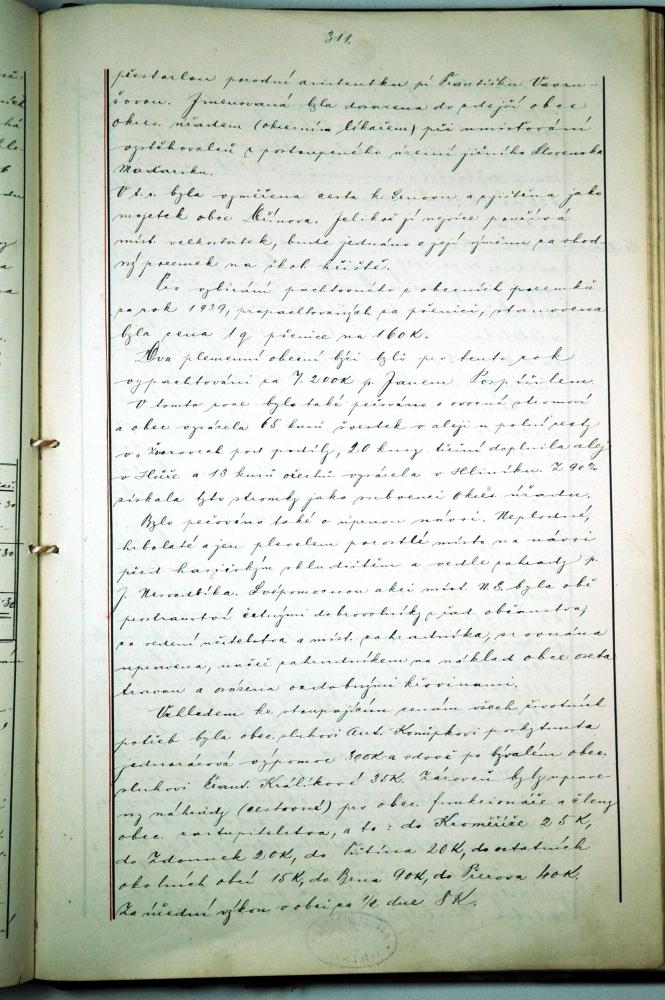 311.
přestarlou porodní asistentku pí Františku Vavru-
šovou. Jmenovaná byla dosazena do zdejší obce
okres. úřadem (okresním lékařem) při umisťování
vystěhovalců z postoupeného území jižního Slovenska
Maďarsku.
V t. r. byla vyměřena cesta k a zjištěna jako
majetek obce Jelikož jí nejvíce používá
míst. velkostatek, bude jednáno o její výměnu za vhod-
ný pozemek na škol. hřiště.
Pro vybírání pachtovného z obecních pozemků
za rok 1939, propachtovaných za pšenici, stanovena
byla cena 1 q pšenice na 160K.
Dva plemenní obecní býci byli pro tento rok
vypachtováni za 7.200K p. Janem Pospíšilem.
V tomto roce bylo také pečováno o ovocné stromoví
a obec vysázela 65 kusů švestek v aleji u polní cesty
v „ pod podíly, 20 kusy třešní doplnila alej
v a 13 kusů ořechů vysázela v Hliníku. Z 90%
získala tyto stromky jako subvenci Okres. úřadu.
Bylo pečováno také o úpravu návsi. Neplodné,
hrbolaté a jen plevelem porostlé místo na návsi
před hasičským skladištěm a vedle zahrady p.
J. Nesvadbíka. Svépomocnou akcí míst. N.S. byla obě
prostranství četnými dobrovolníky z řad občanstva,
za vedení učitelstva a míst. zahradníka, srovnána
upravena, načež zahradníkem na náklad obce oseta
travou a osázena ozdobnými křovinami.
Vzhledem ke stoupajícím cenám všech životních
potřeb byla obec. sluhovi Ant. Konupkovi poskytnuta
jednorázová výpomoc 300K a vdově po bývalém obec.
sluhovi Frant. Králíkové 35K. Zároveň byly uprave-
ny náhrady (cestovné) pro obec. funkcionáře a členy
obec. zastupitelstva, a to: do Kroměříže 25K,
do Zdounek 20K, do 20K, do ostatních
okolních obcí 15K, do Brna 90K, do Přerova 40K.
Za úřední výkon v obci za 1/2 dne 8K.